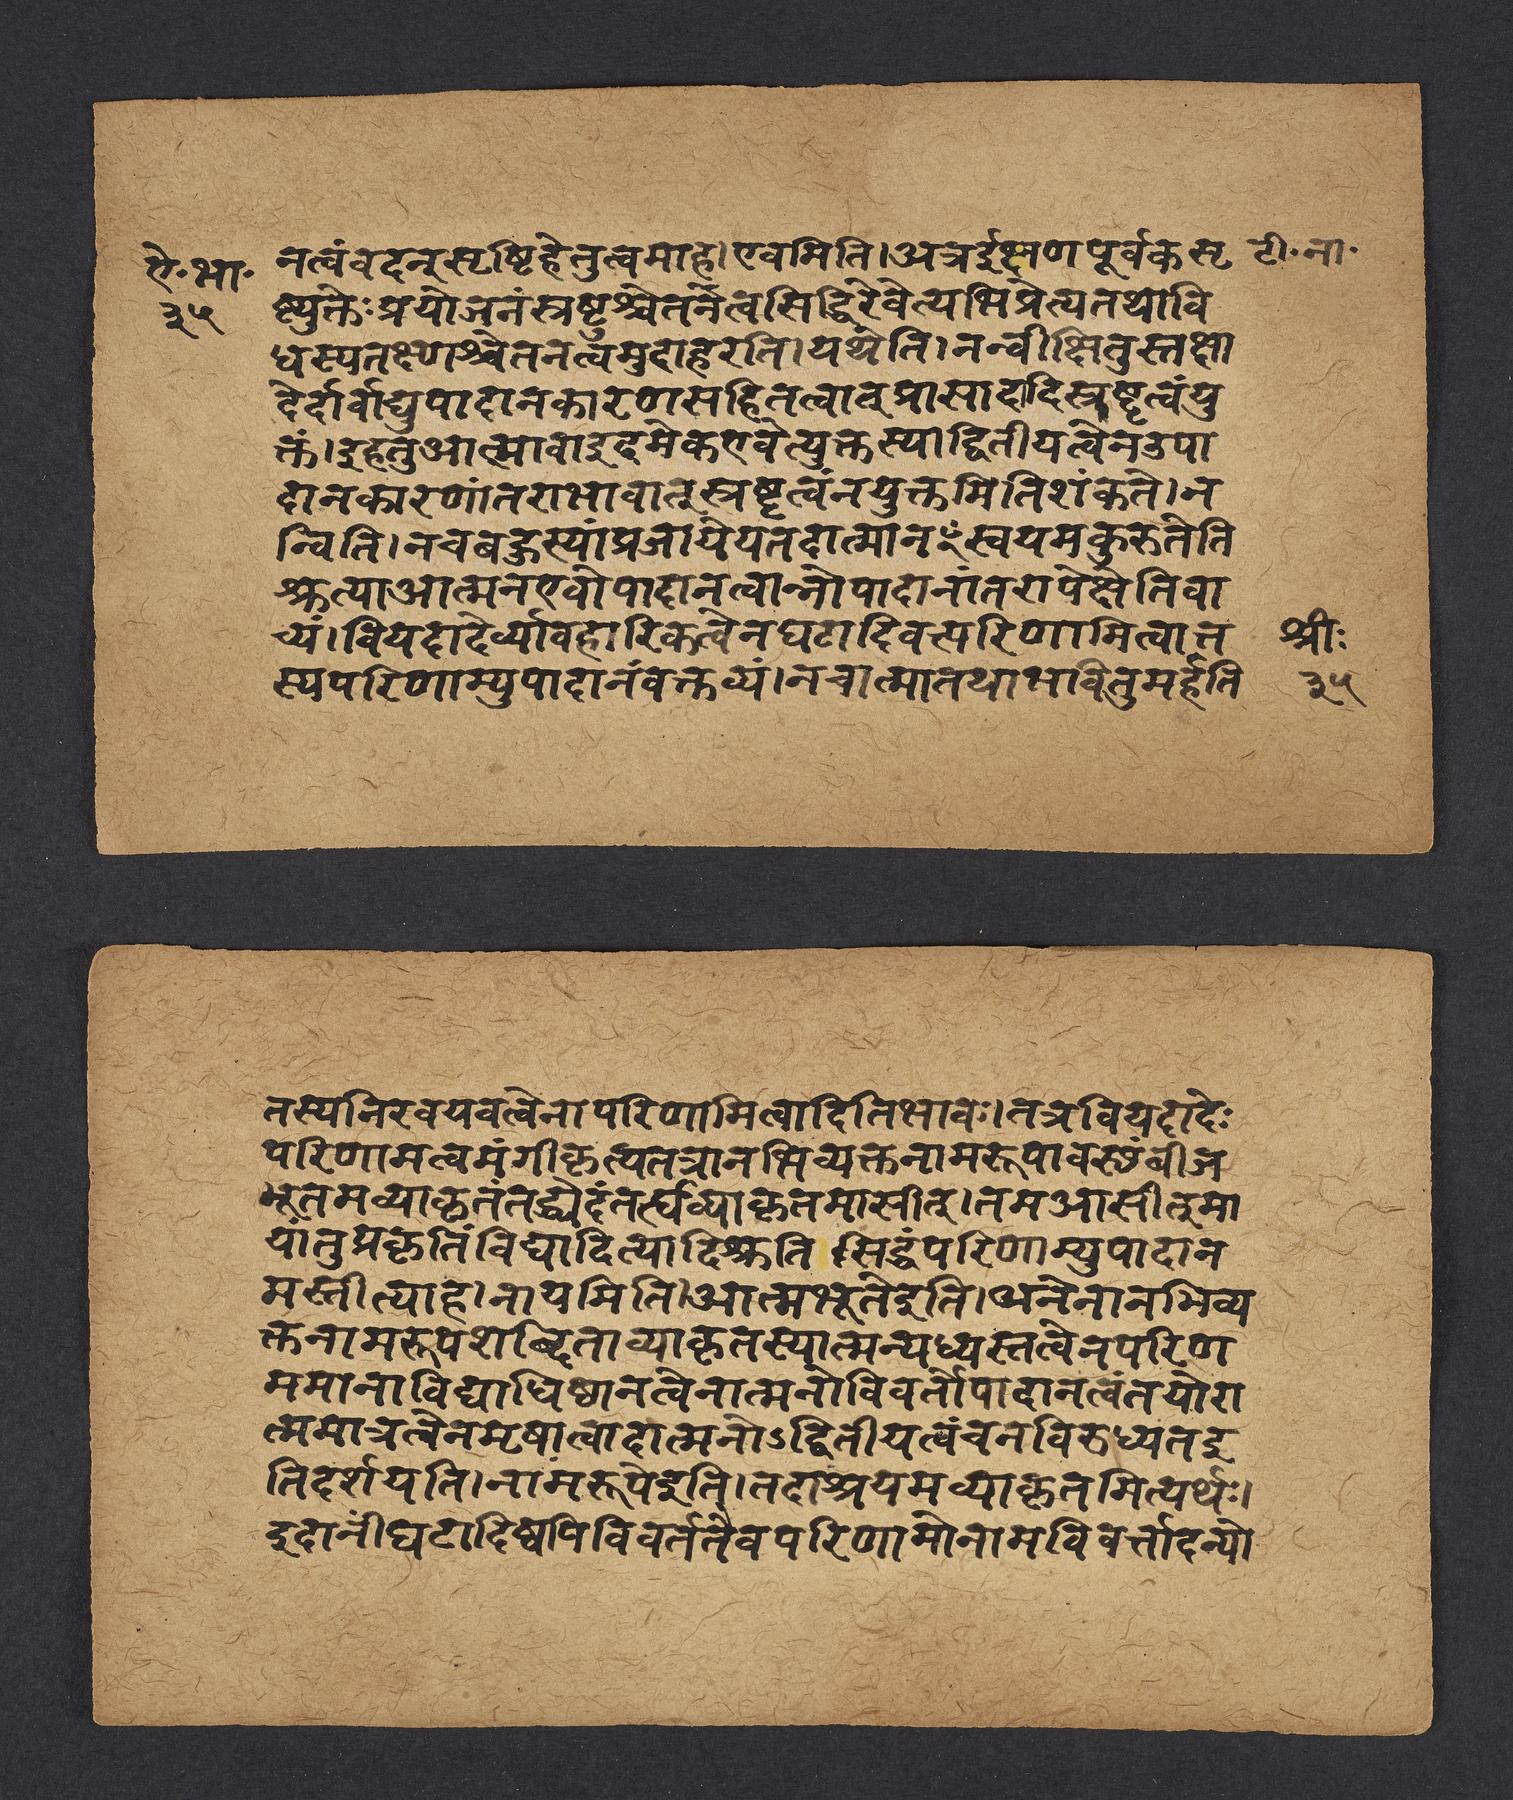 ऐ·भा·
३५
नत्वंवदन्सृष्टिहेतुत्वमाह।एवमिति।अत्रईक्षणपूर्वकसृ टी·ना·
ष्ट्युक्तेःप्रयोजनंस्रष्टुश्चेतनत्वसिद्धिरेवेत्यभिप्रेत्यतथावि
धस्यतक्ष्णश्चेतनत्वमुदाहरति।यथेति।नन्वीक्षितुस्तक्षा
देर्दार्वाद्युपादानकारणसहितत्वात्प्रासादादिस्रष्टृत्वंयु
क्तं।इहतुआत्मावाइदमेकएवेत्युक्तस्याद्वितीयत्वेनउपा
दानकारणांतराभावात्स्रष्टृत्वंनयुक्तमितिशंकते।न
न्विति।नचबहुस्यांप्रजायेयतदात्मानꣳस्वयमकुरुतेति
श्रुत्याआत्मनएवोपादानत्वान्नोपादानांतरापेक्षेतिवा
च्यं।वियदादेर्व्यावहारिकत्वेनघटादिवत्परिणामित्वात्त श्रीः
स्यपरिणाम्युपादानंवक्तव्यं।नचात्मातथाभवितुमर्हति ३५
तस्यनिरवयवत्वेनापरिणामित्वादितिभावः।तत्रवियदादेः
परिणामत्वमंगीकृत्यतत्रानभिव्यक्तनामरूपावस्थंबीज
भूतमव्याकृतंतद्धेदंतर्ह्यव्याकृतमासीत्।तमआसीत्मा
यांतुप्रकृतिंविद्यादित्यादिश्रुति सिद्धंपरिणाम्युपादान
मस्तीत्याह।नायमिति।आत्मभूतेइति।अनेनानभिव्य
क्तनामरूपशब्दिताव्याकृतस्यात्मन्यध्यस्तत्वेनपरिण
ममानाविद्याधिष्ठानत्वेनात्मनोविवर्तोपादानत्वंतयोरा
त्ममात्रत्वेनमृषात्वादात्मनोऽद्वितीयत्वंचनविरुध्यतइ
तिदर्शयति।नामरूपेइति।तदाश्रयमव्याकृतमित्यर्थः।
इदानींघटादिष्वपिविवर्ततैवपरिणामोनामविवर्त्तादन्यो